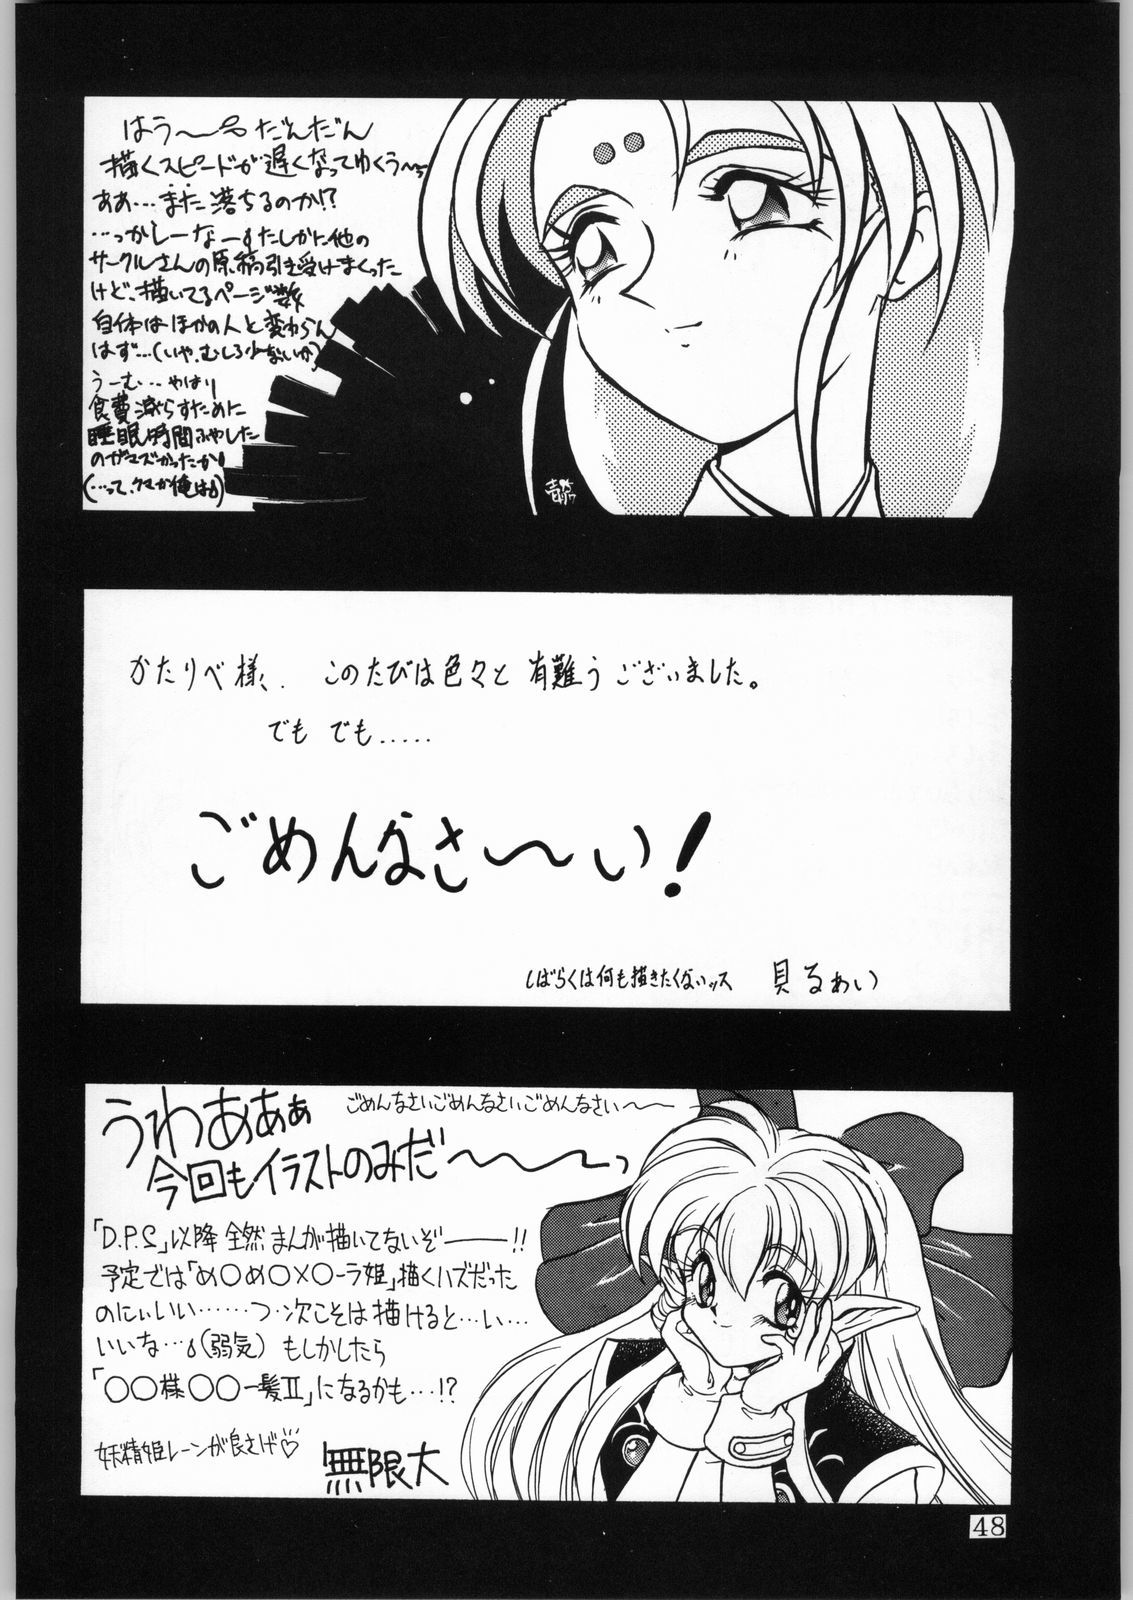 はう〜 だんだん
描くスピードが遅くなってゆくう〜
ああ…また落ちるのか!?
…っかしーなーたしかに他の
サークルさんの原稿引き受けまくった
けど、描いてるページ数
自体はほかの人と変わらん
はず…(いや、むしろ少ないか)
うーむ…やはり
食費減らすために
睡眠時間ふやした
のがマズかったか
(…って、クマか俺は)
かたりべ様、このたびは色々と有難うございました。
でもでも.....
ごめんなさ〜い!
しばらくは何も描きたくないッス 貝るあい
うわあああ ごめんなさいごめんなさいごめんなさい〜
今回もイラストのみだ〜〜っ
「D.P.S」以降全然まんが描いてないぞ――!!
予定では「め〇め〇×〇ーラ姫」描くハズだった
のにぃいい……つ・次こそは描けると…い…
いいな…(弱気) もしかしたら
「〇〇様〇〇一髪Ⅱ」になるかも…!?
妖精姫レーンが良さげ♡ 無限大
48